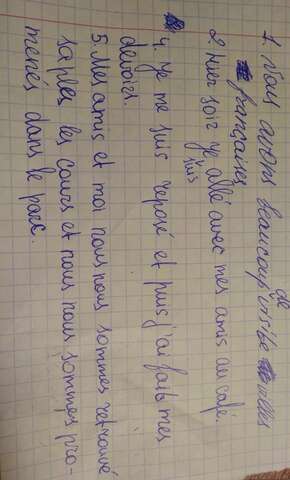 1. Nous avons beaucoup visité de villes
françaises
2. Hier soir je suis allé avec mes amis au café.
4. Je me suis reposé et puis j'ai fait mes
devoirs.
5. Mes amis et moi nous nous sommes retrouvé
s après les cours et nous nous sommes pro-
menés dans le parc.